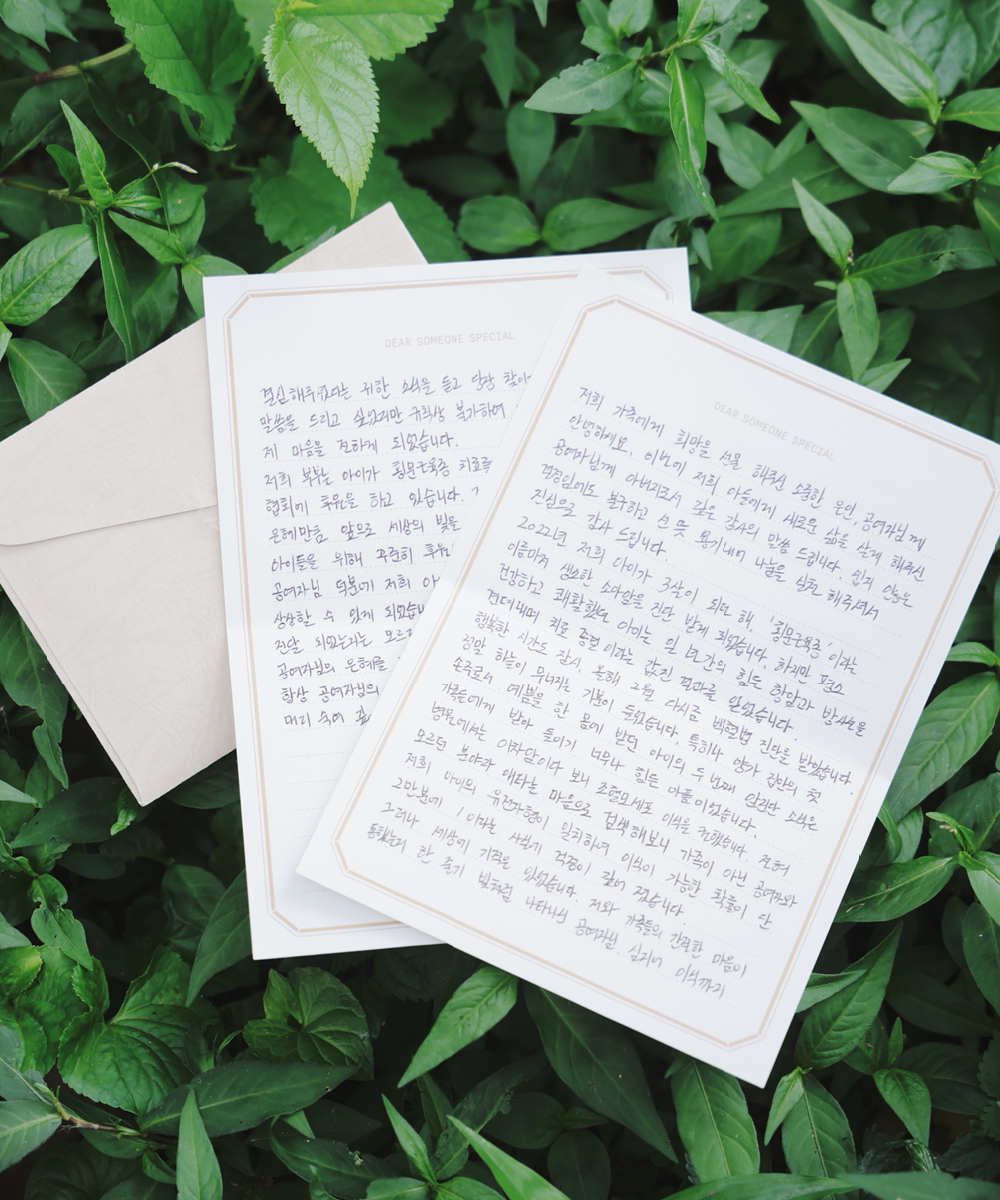 DEAR SOMEONE SPECIAL
저희 가족에게 희망을 선물 해주신 소중한 은인, 공여자님께
안녕하세요, 이번에 저희 아들에게 새로운 삶을 살게 해주신
공여자님께 아버지로서 깊은 감사의 말씀 드립니다. 쉽지 않은
결정임에도 불구하고 선뜻 용기내어 나눔을 실천 해주셔서
진심으로 감사 드립니다.
2022년 저희 아이가 3살이 되던 해, '횡문근육종'이라는
이름마저 생소한 소아암을 진단 받게 되었습니다. 하지만 평소
건강하고 쾌활했던 아이는 일 년간의 힘든 항암과 방사선을
견뎌내며 치료 종결이라는 값진 결과를 얻었습니다.
행복한 시간도 잠시, 올해 2월 다시금 백혈병 진단을 받았습니다.
정말 하늘이 무너지는 기분이 들었습니다. 특히나 양가 집안의 첫
손주로서 예쁨을 한 몸에 받던 아이의 두번째 암진단 소식은
가족들에게 받아 들이기 너무나 힘든 아픔이었습니다.
병원에서는 이차암이다 보니 조혈모세포 이식을 권했습니다. 전혀
모르던 분야라 애타는 마음으로 검색해보니 가족이 아닌 공여자와
저희 아이의 유전자형이 일치하여 이식이 가능한 확률이 단
2만분에 1이라는 사실에 걱정이 깊어 졌습니다
그러나 세상에 기적은 있었습니다. 저와 가족들의 간절한 마음이
통했는지 한 줄기 빛처럼 나타나신 공여자님. 심지어 이식까지
DEAR SOMEONE SPECIAL
결심해주셨다는 귀한 소식을 듣고 당장 찾아
말씀을 드리고 싶었지만 규칙상 불가하여
제 마음을 전하게 되었습니다.
저희 부부는 아이가 횡문근육종 치료
협회에 후원을 하고 있습니다.
은혜만큼 앞으로 세상의 빛을
아이들을 위해 꾸준히 후원
공여자님 덕분에 저희 아
상상할 수 있게 되었습니
전달 되었는지는 모르
공여자님의 은혜를
항상 공여자님의
머리 숙여